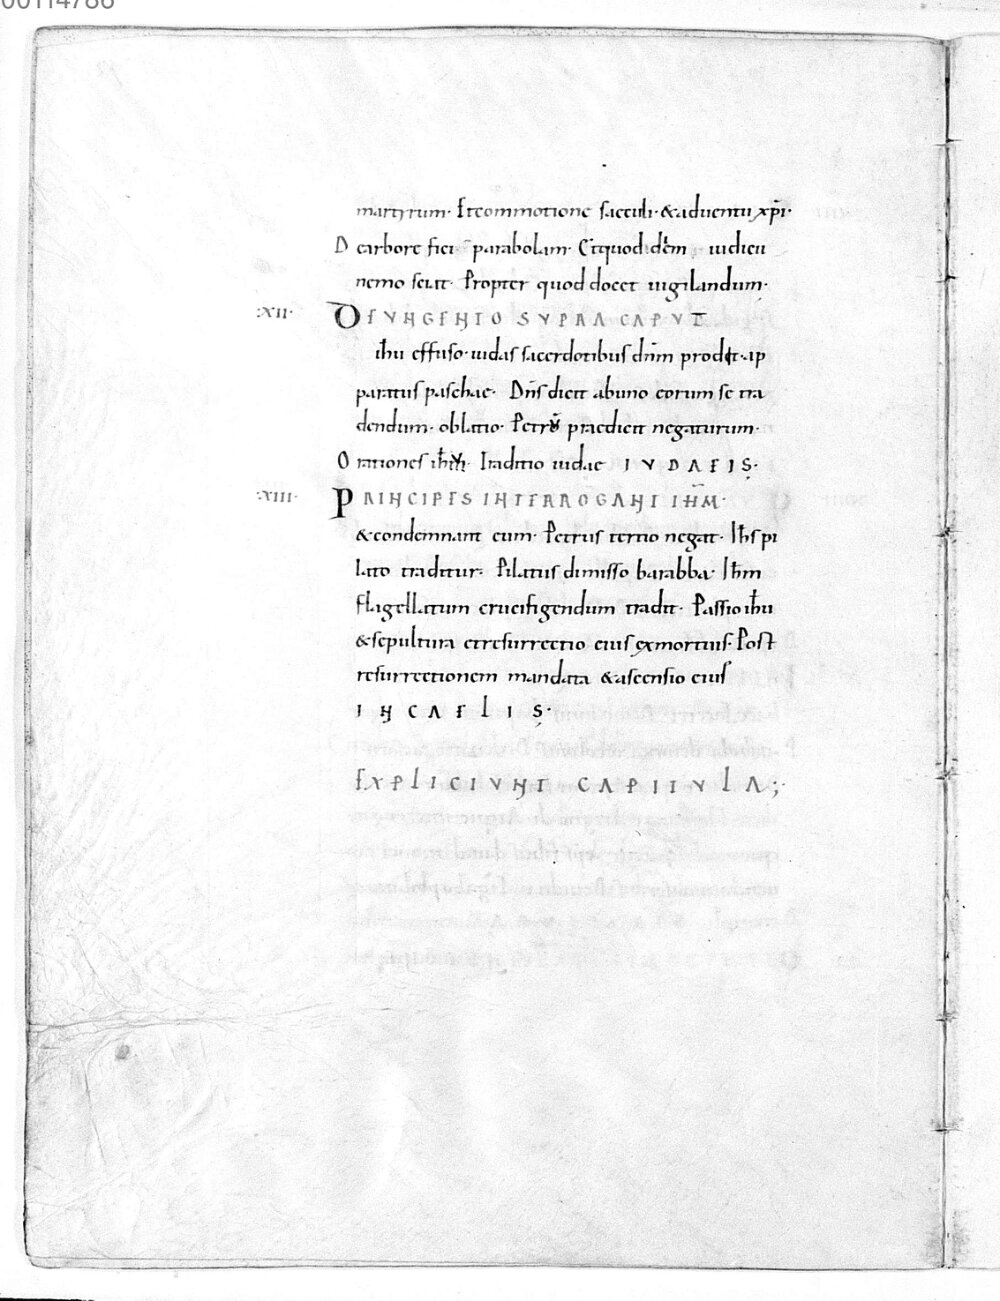 00114786
martyrum· Etcommotione saeculi·&aduentu xp̄i·
Dearbore fici parabolam· Etquod diem iudicii
nemo sciat· Propter quod docet uigilandum·
·XII· DE VNGENTO SVPRA CAPVT
ihu effuso·iudas sacerdotibus dn̄m prodit·ap
paratus paschae· Dn̄s dicit abuno eorum se tra
dendum· oblatio· Petrus praedicit negaturum·
Orationes ihu· Traditio iudae IVDAEIS·
·XIII· PRINCIPES INTERROGANT IHM̄·
&condemnant eum· Petrus tertio negat· Ihs pi
lato traditur· Pilatus dimisso barabba· Ihm
flagellatum crucifigendum tradit· Passio ihu
&sepultura etresurrectio eius exmortuis· Post
resurrectionem mandata &ascensio eius
IN CAELIS·
EXPLICIVNT CAPITVLA;·